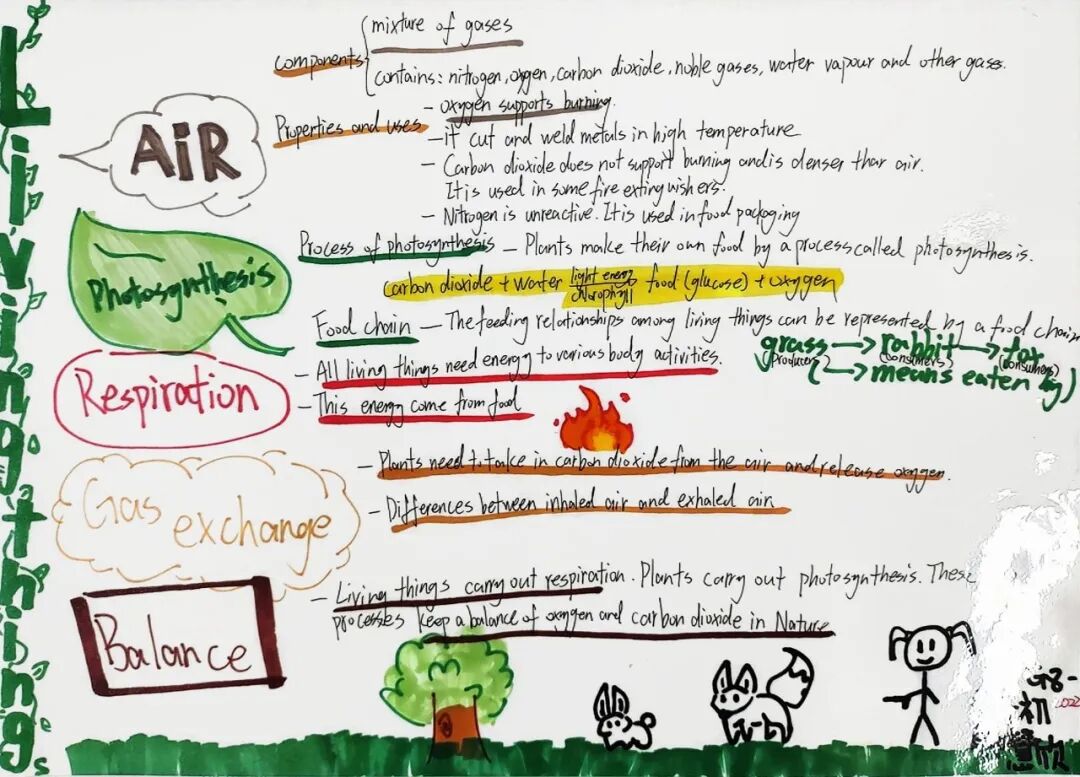 Living things
components
mixture of gases
contains: nitrogen, oxygen, carbon dioxide, noble gases, water vapour and other gases.
AiR
Properties and uses
- oxygen supports burning.
- it cut and weld metals in high temperature
- Carbon dioxide does not support burning and is denser than air.
It is used in some fire extinguishers.
- Nitrogen is unreactive. It is used in food packaging
Photosynthesis
Process of photosynthesis - Plants make their own food by a process called photosynthesis.
carbon dioxide + water light energy chlorophyll food (glucose) + oxygen
Food chain - The feeding relationships among living things can be represented by a food chain
grass → rabbit → fox
(producer) (consumers) (consumers)
(→ means eaten by)
Respiration
- All living things need energy to various body activities.
- This energy come from food
Gas exchange
- Plants need to take in carbon dioxide from the air and release oxygen.
- Differences between inhaled air and exhaled air
Balance
- Living things carry out respiration. Plants carry out photosynthesis. These
processes keep a balance of oxygen and carbon dioxide in Nature